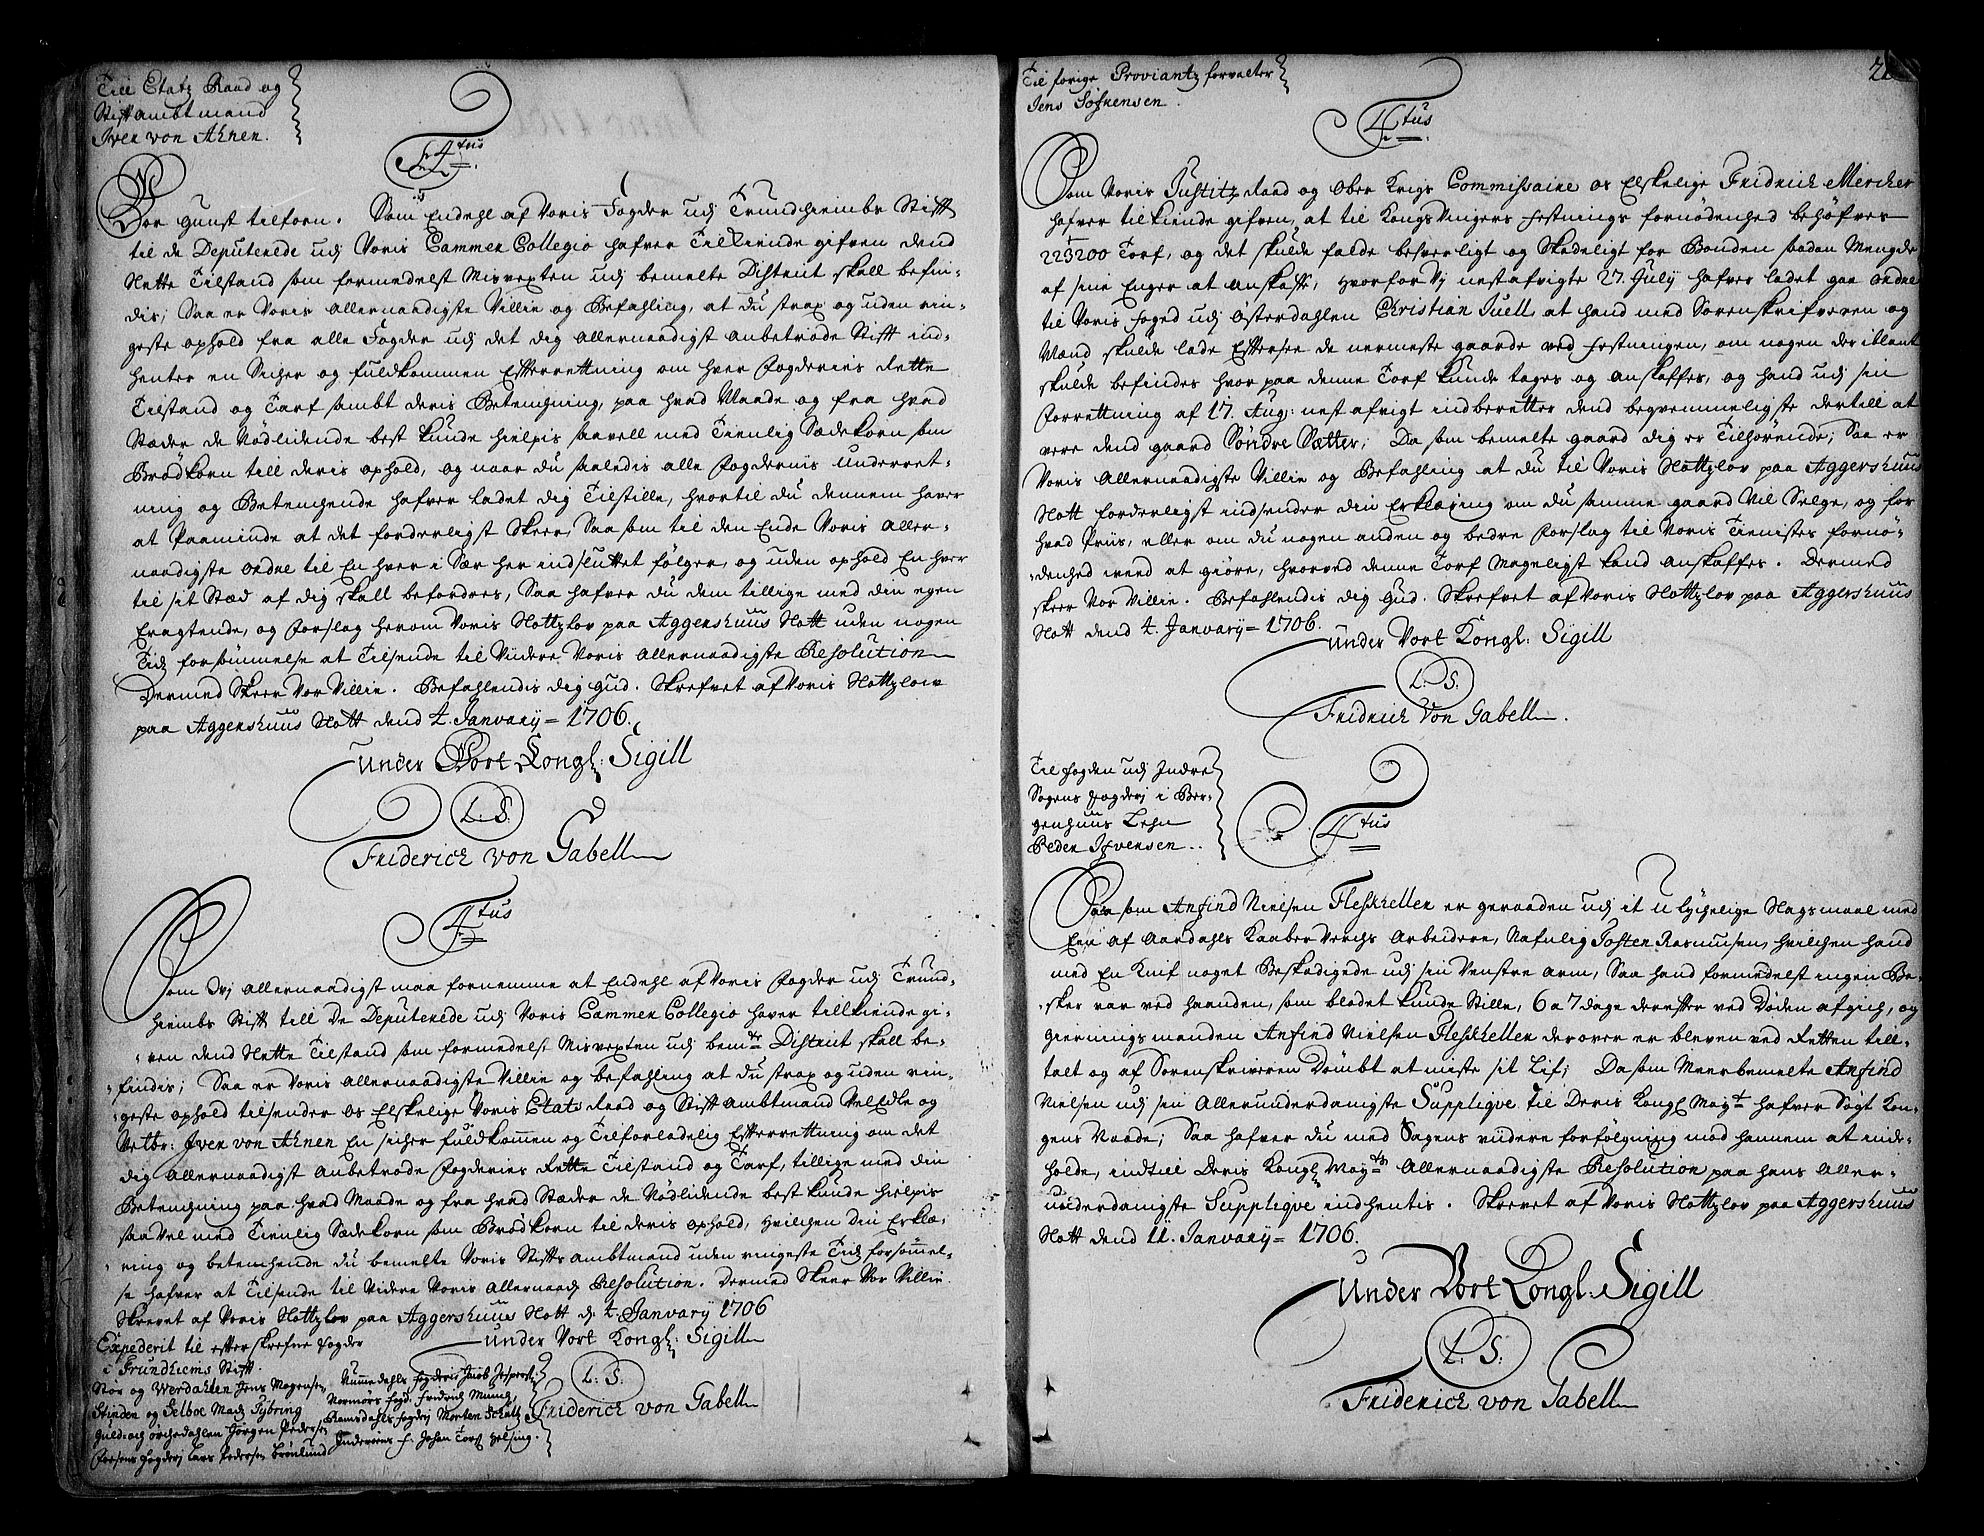 Till Etatz Raad og
Stiftambtmand
Iver von Ahnen.
F. 4tus
Vor gunst tilforn. Som Endehl af Voris Fogder udj Trundhiembs Stift
til de Deputerede udj Voris Cammer Collegio hafver Tilkiende gifven dend
Slette Tilstand som formedelst Misvexten udj bemelte District skall befin-
dis; Saa er Voris Allernaadigste Villie og Befahling, at du strax og uden rin-
geste ophold fra alle Fogder udj det dig allernaadigst anbetrode Stift ind-
henter en Sicher og fuldkommen Efterrettning om hver Fogderies Rette
Tilstand og Tarf sambt deris Betenchning, paa hvad Maade og fra hvad
Stæder de Nødlidende best kunde hielpis saavell med Tienlig Sædekorn som
Brødkorn till deris ophold, og naar du saaledis alle Fogdernis underret-
ning og Betenchende hafver ladet dig Tilstille, hvortil du dennem haver
at Paaminde at det forderligst Skeer, Saa som til den Ende Voris Aller-
naadigste ordre til En hver i Sær her indsluttet følger, og uden ophold En hver
til sit Stæd af dig skall befordres, Saa hafver du dem tillige med din egen
Eragtende, og Forslag herom Voris Slottzlov paa Aggershuus Slott uden nogen
Tids forsømmelse at Tilsende til Viidere Voris allernaadigste Resolution
Dermed Skeer Vor Villie. Befahlendis dig Gud. Skrefvet af Voris Slottzlov
paa Aggershuus Slott dend 4. January = 1706.
under Vort Kongl: Sigill
L. S.
Friderich von Gabell
4tus
Som Vj allernaadigst maa fornemme at Endehl af Voris Fogder udj Trund-
hiembs Stift till De Deputerede udj Voris Cammer Collegio haver tillkiende gi-
ven dend Slette Tilstand som formedelst Misvexten udj bemte District skall be-
findis; Saa er Voris allernaadigste Villie og befahling at du strax og uden rin-
geste ophold tilsender os Elskelige Voris Etats Raad og Stift Ambtmand VelEdle og
Velbr: Iver von Ahnen En sicher fuldkommen og Tilforladelig Efterrettning om det
dig Allernaadigst Anbetrode Fogderies Rette Tilstand og Tarf, tillige med din
Betenchning paa hvad Maade og fra hvad Stæder de Nødlidende best kunde hielpis
saa Vel med Tienlig Sædekorn som Brødkorn til deris ophold, hvilchen Din Erklæ-
ring og betenchende du bemelte Voris Stiftsambtmand uden ringeste Tids forsømmel-
se hafver at Tilsende til Videre Voris Allernaads Resolution. Dermed Skeer Vor Villie.
Skrevet af Voris Slottzlov paa Aggershuus Slott d: 4. January 1706
under Vort Kongl: Sigill
L. S.
Friderich von Gabell
Expederit til efterskrefne fogder
i Trundhiems Stift.
Stør og Werdahlen Jens Mogensen
Strinden og Selboe Mads Tybring
Guld- og Orchedahlen Jørgen Pedersen
Fosens Fogderj Lars Pedersen Brønlund
Nummedahls fogderie Jacob Jespers:
Normørs fogd. Fridrich Münch,
Romsdahls fogderj Morten Schultz
Inderøens f. Johan Torst Helsing.
Til forige Proviantz forvalter
Jens Søfrensen.
4tus
Som Voris Justitz Raad og Ober Krigs Commissaire os Elskelige Fridrich Mercker
hafver tilkiende gifven, at til KongsVingers festnings fornødenhed behøfves
223200 Torf, og det skulde falde besverligt og Skadeligt for Bonden saadan Mengde
af sine Enger at anskaffe, hvorfor Vj nestafvigte 27. July hafver ladet gaa ordre
til Voris foged udj Østerdahlen Christian Juell at hand med Sorenskrifveren og
Mænd skulde lade Eftersee de nermeste gaarde ved festningen, om nogen der iblant
skulde befindes hvor paa denne Torf kunde tages og anskaffes, og hand udj sin
Forrettning af 17. Aug: nest afvigt indberetter dend beqvemmeligste dertill at
vere dend gaard Søndre Sætter; Da som bemelte gaard dig er Tilhørende; Saa er
Voris Allernaadigste Villie og Befahling at du til Voris Slottzlov paa Aggershuus
Slott forderligst indsender din Erklæring om du samme gaard Vil Selge, og for
hvad Priis, eller om du nogen anden og bedre Forslag til Voris Tienistes fornø-
denhed veed at giøre, hvorved denne Torf Mageligst kand anskaffes. Dermed
skeer Vor Villie. Befahlendis dig Gud. Skrefvet af Voris Slottzlov paa Aggershuus
Slott dend 4. January = 1706.
under Vort Kongl: Sigill
L. S.
Fridrich von Gabell.
Til fogden udj Indre
Sogens fogderj i Ber-
genhuus Lehn
Peder Ifversen.
4tus
Saa som Anfind Nielsen Fleskhellen er geraaden udj it ulychelige Slagsmaal med
Een af Aardahls Kaaber Verchs Arbeidere, Nafnlig Josten Rasmusen, hvilchen hand
med En Knif noget Beskadigede udj sin Venstre arm, Saa hand formedelst ingen Be-
sker var ved haanden, som blodet kunde Stille, 6 a 7 dage derefter ved Døden afgich, og
gierningsmanden Anfind Nielsen Fleskhellen derover er bleven ved Retten till-
talt og af Sorenskriveren Dømbt at miste sit Lif; Da som Meerbemelte Anfind
Nielsen udj sin Allerunderdanigste Supplique til Deris Kongl Mayt hafver Søgt Kon-
gens Naade; Saa hafver du med Sagens viidere forfølgning mod hannem at inde-
holde, indtill Deris Kongl Mayts Allernaadigste Resolution paa hans Aller-
underdanigste Supplique indhentis. Skrevet af Voris Slottzlov paa Aggershuus
Slott dend 11. January = 1706.
Under Vort Kongl: Sigill
L. S.
Friderich von Gabell